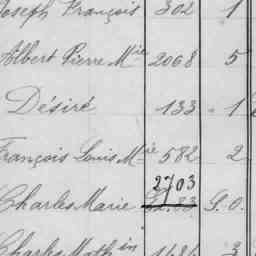 Joseph François 302 1
Albert Pierre Mie 2068 5
Désiré 133 1
François Louis Mie 582 2
2703
Charles Marie S.O.
Charles Math in 1686 3